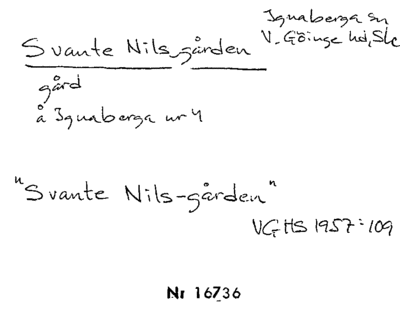 Ignaberga sn
V. Göinge hd, Sk
Svante Nils-gården
gård
å Ignaberga nr 4
"Svante Nils-gården"
VGHS 1957:109
Nr 16736